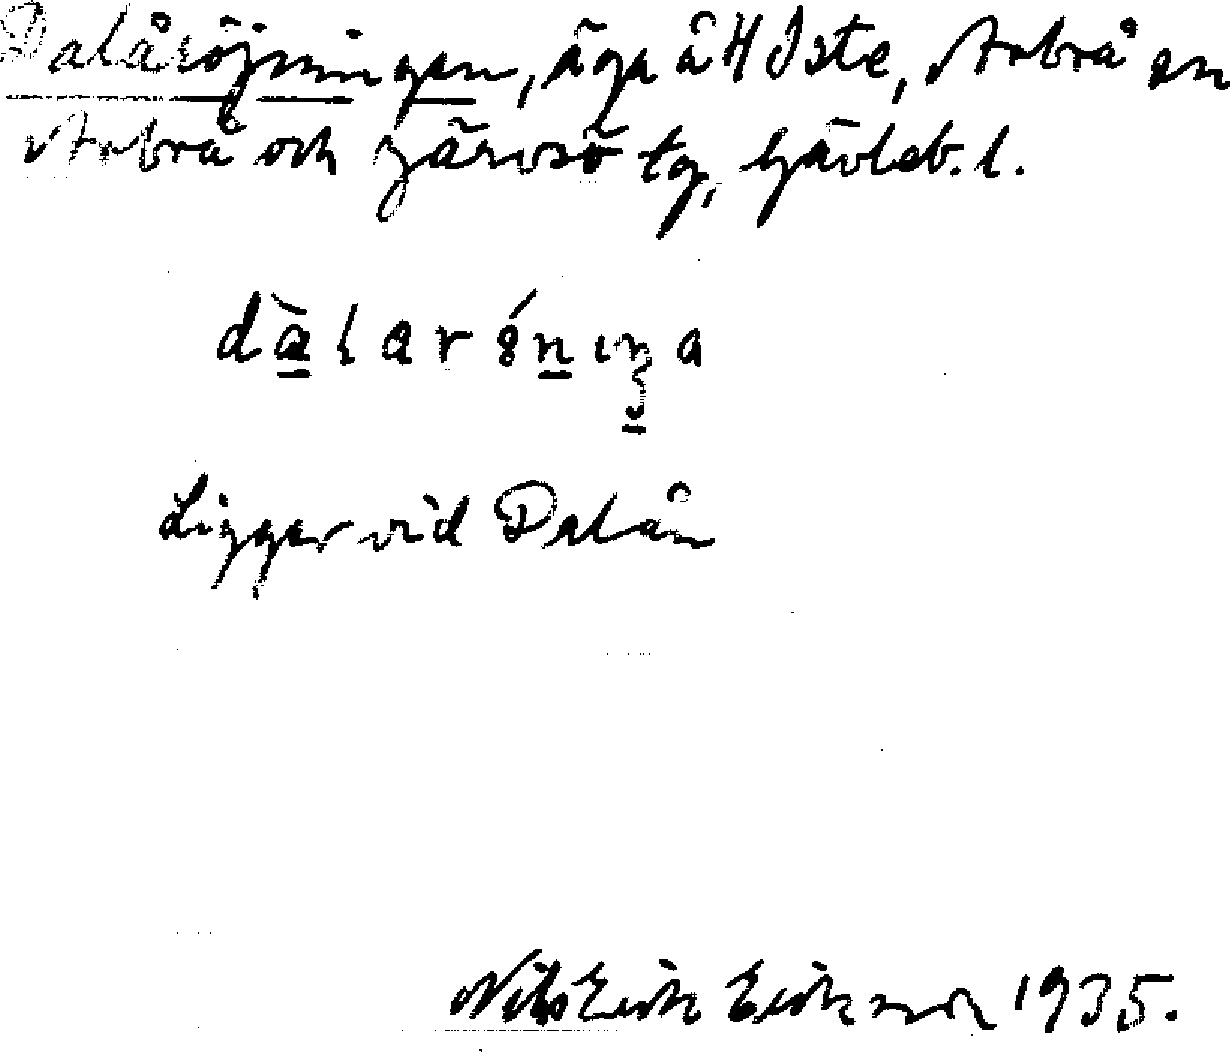 Dalåröjningen, äga å H Iste, Arbrå sn
Arbrå och Järvsö tg, Gävleb. l.
dàlarǿnıŋa
Ligger vid Dalån
Nils Erik Erikson 1935.